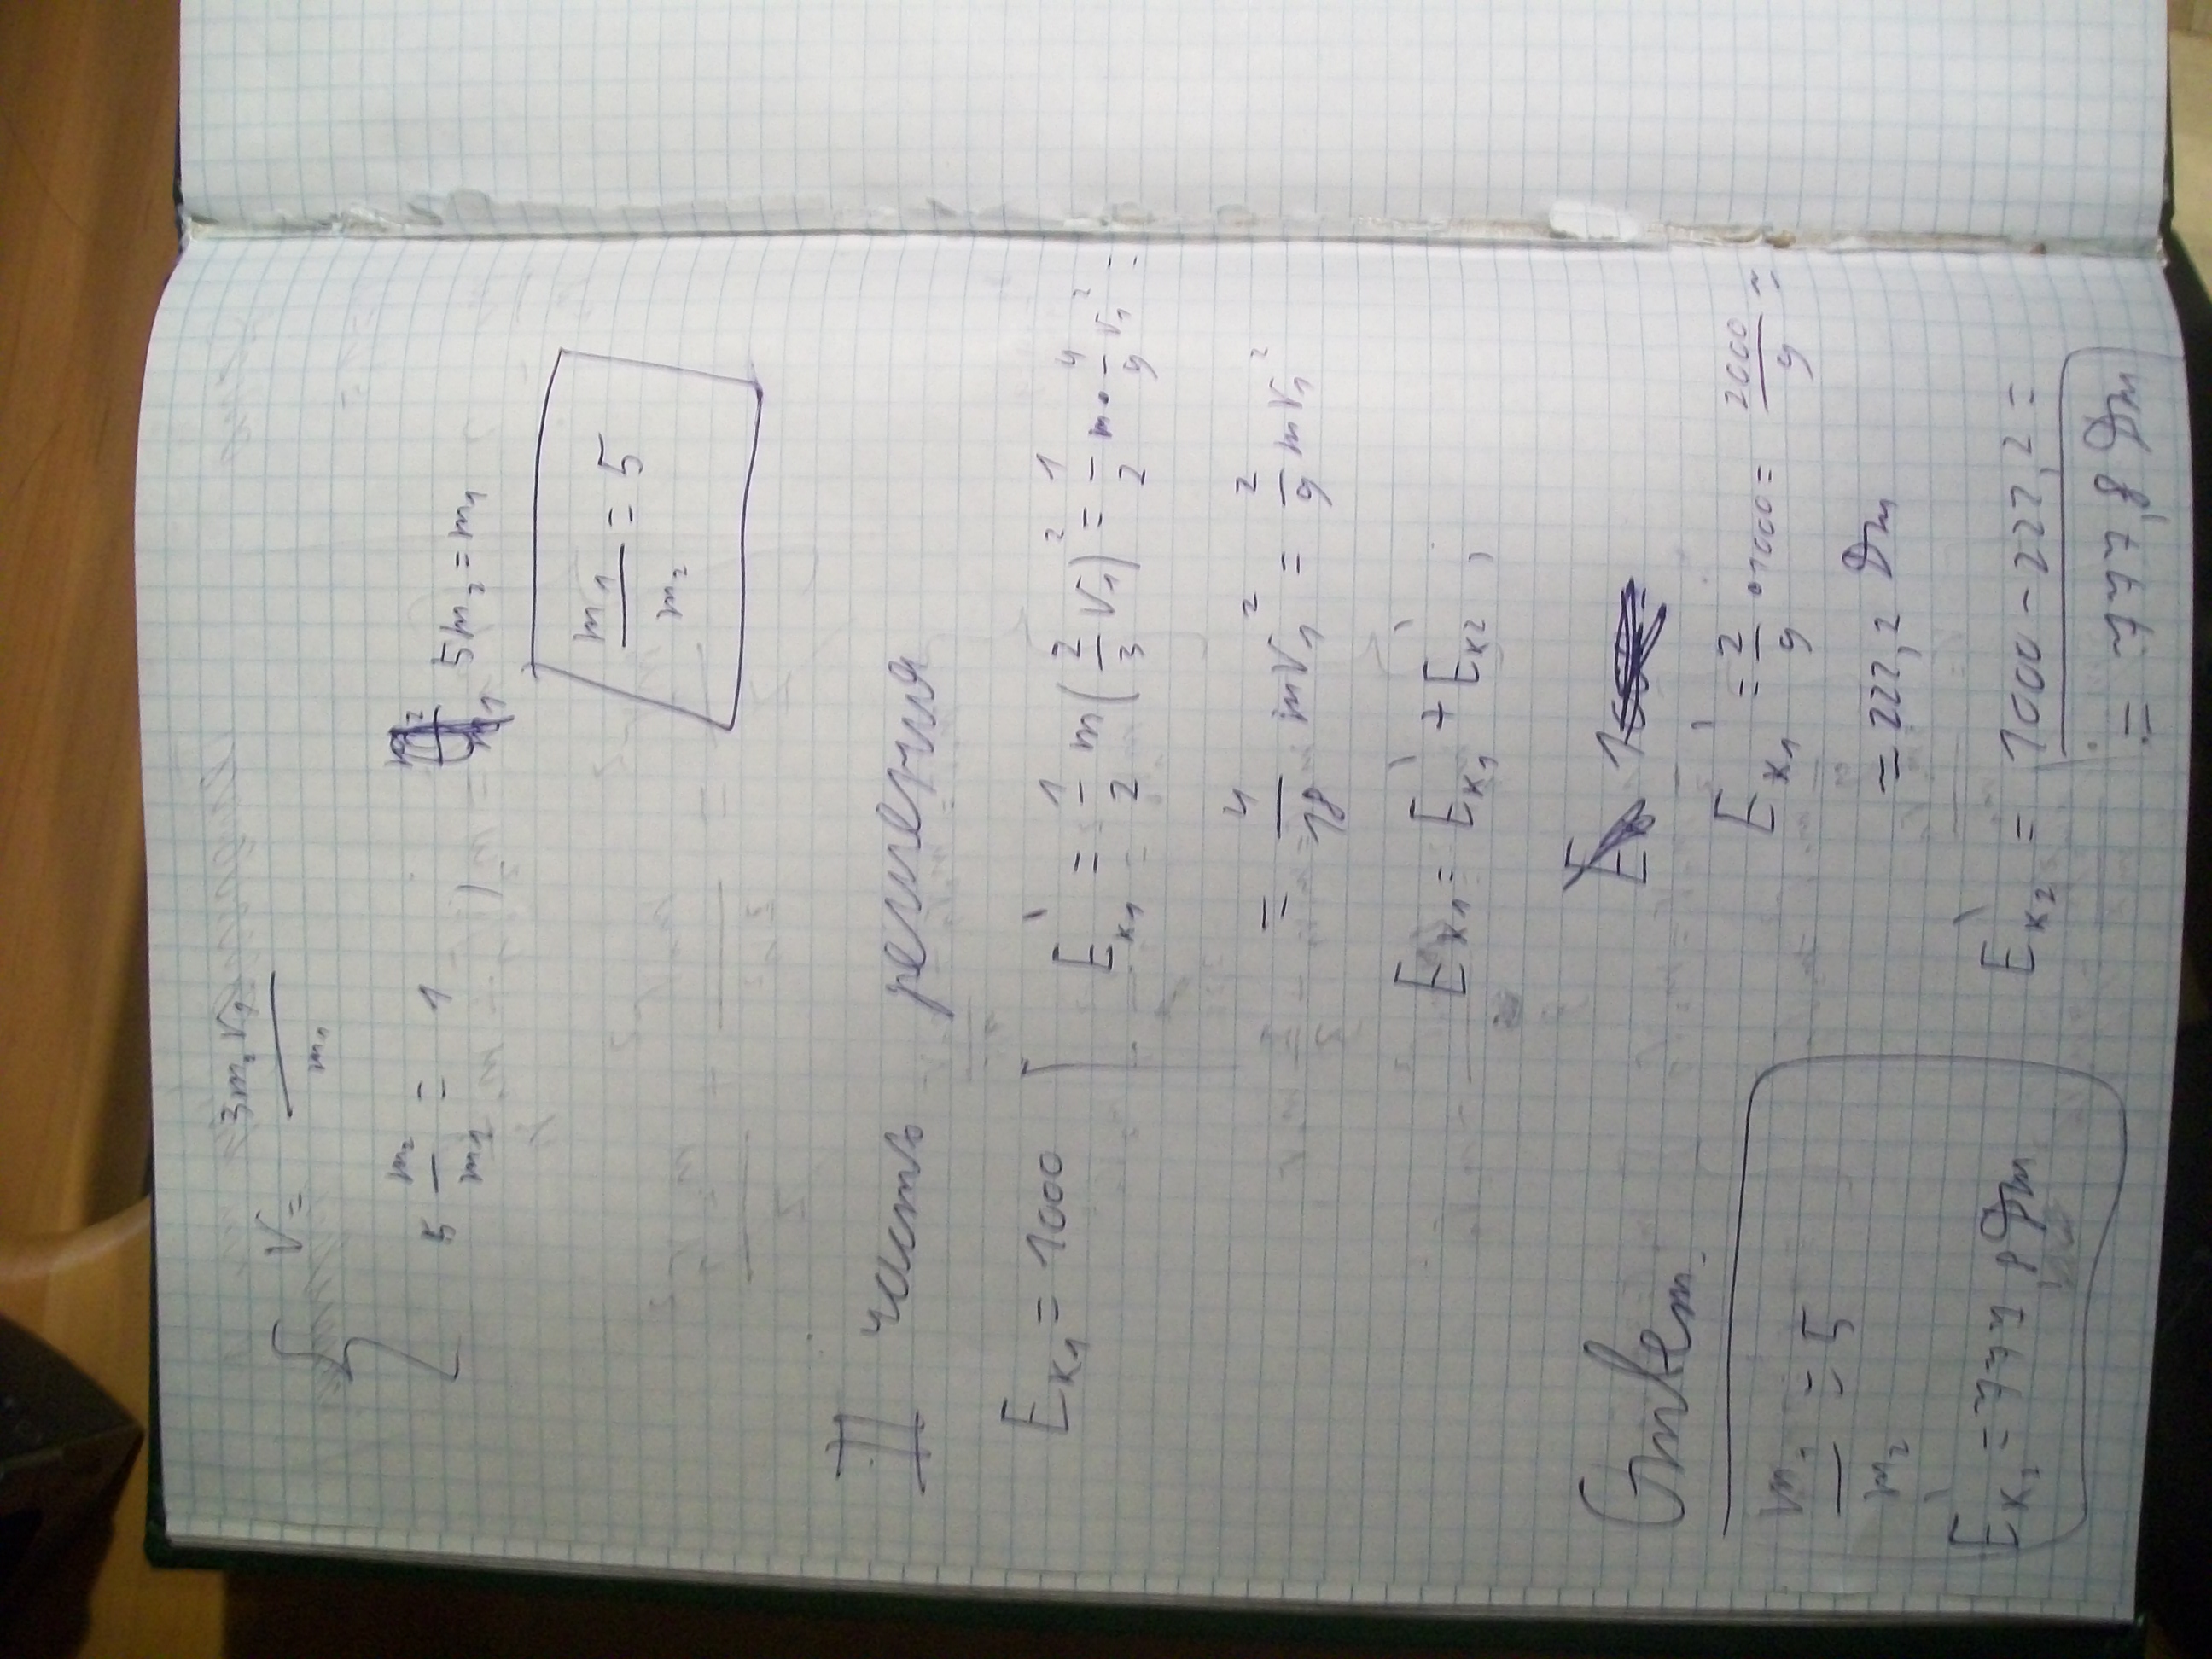 V = 3m₂V₁ / m₁
5 m₂/m₁ = 1
5m₂ = m₁
m₁/m₂ = 5
II часть решения
Eк₁ = 1000
Eк₁' = 1/2 m(2/3 V₁)² = 1/2 m · 4/9 V₁² =
= 4/18 mV₁² = 2/9 mV₁²
Eк₁ = Eк₁' + Eк₂'
Eк₁' = 2/9 · 1000 = 2000/9 ≈
≈ 222,2 Дж
Eк₂' = 1000 - 222,2 =
= 777,8 Дж
Ответ.
m₁/m₂ = 5
Eк₂' = 777,8 Дж